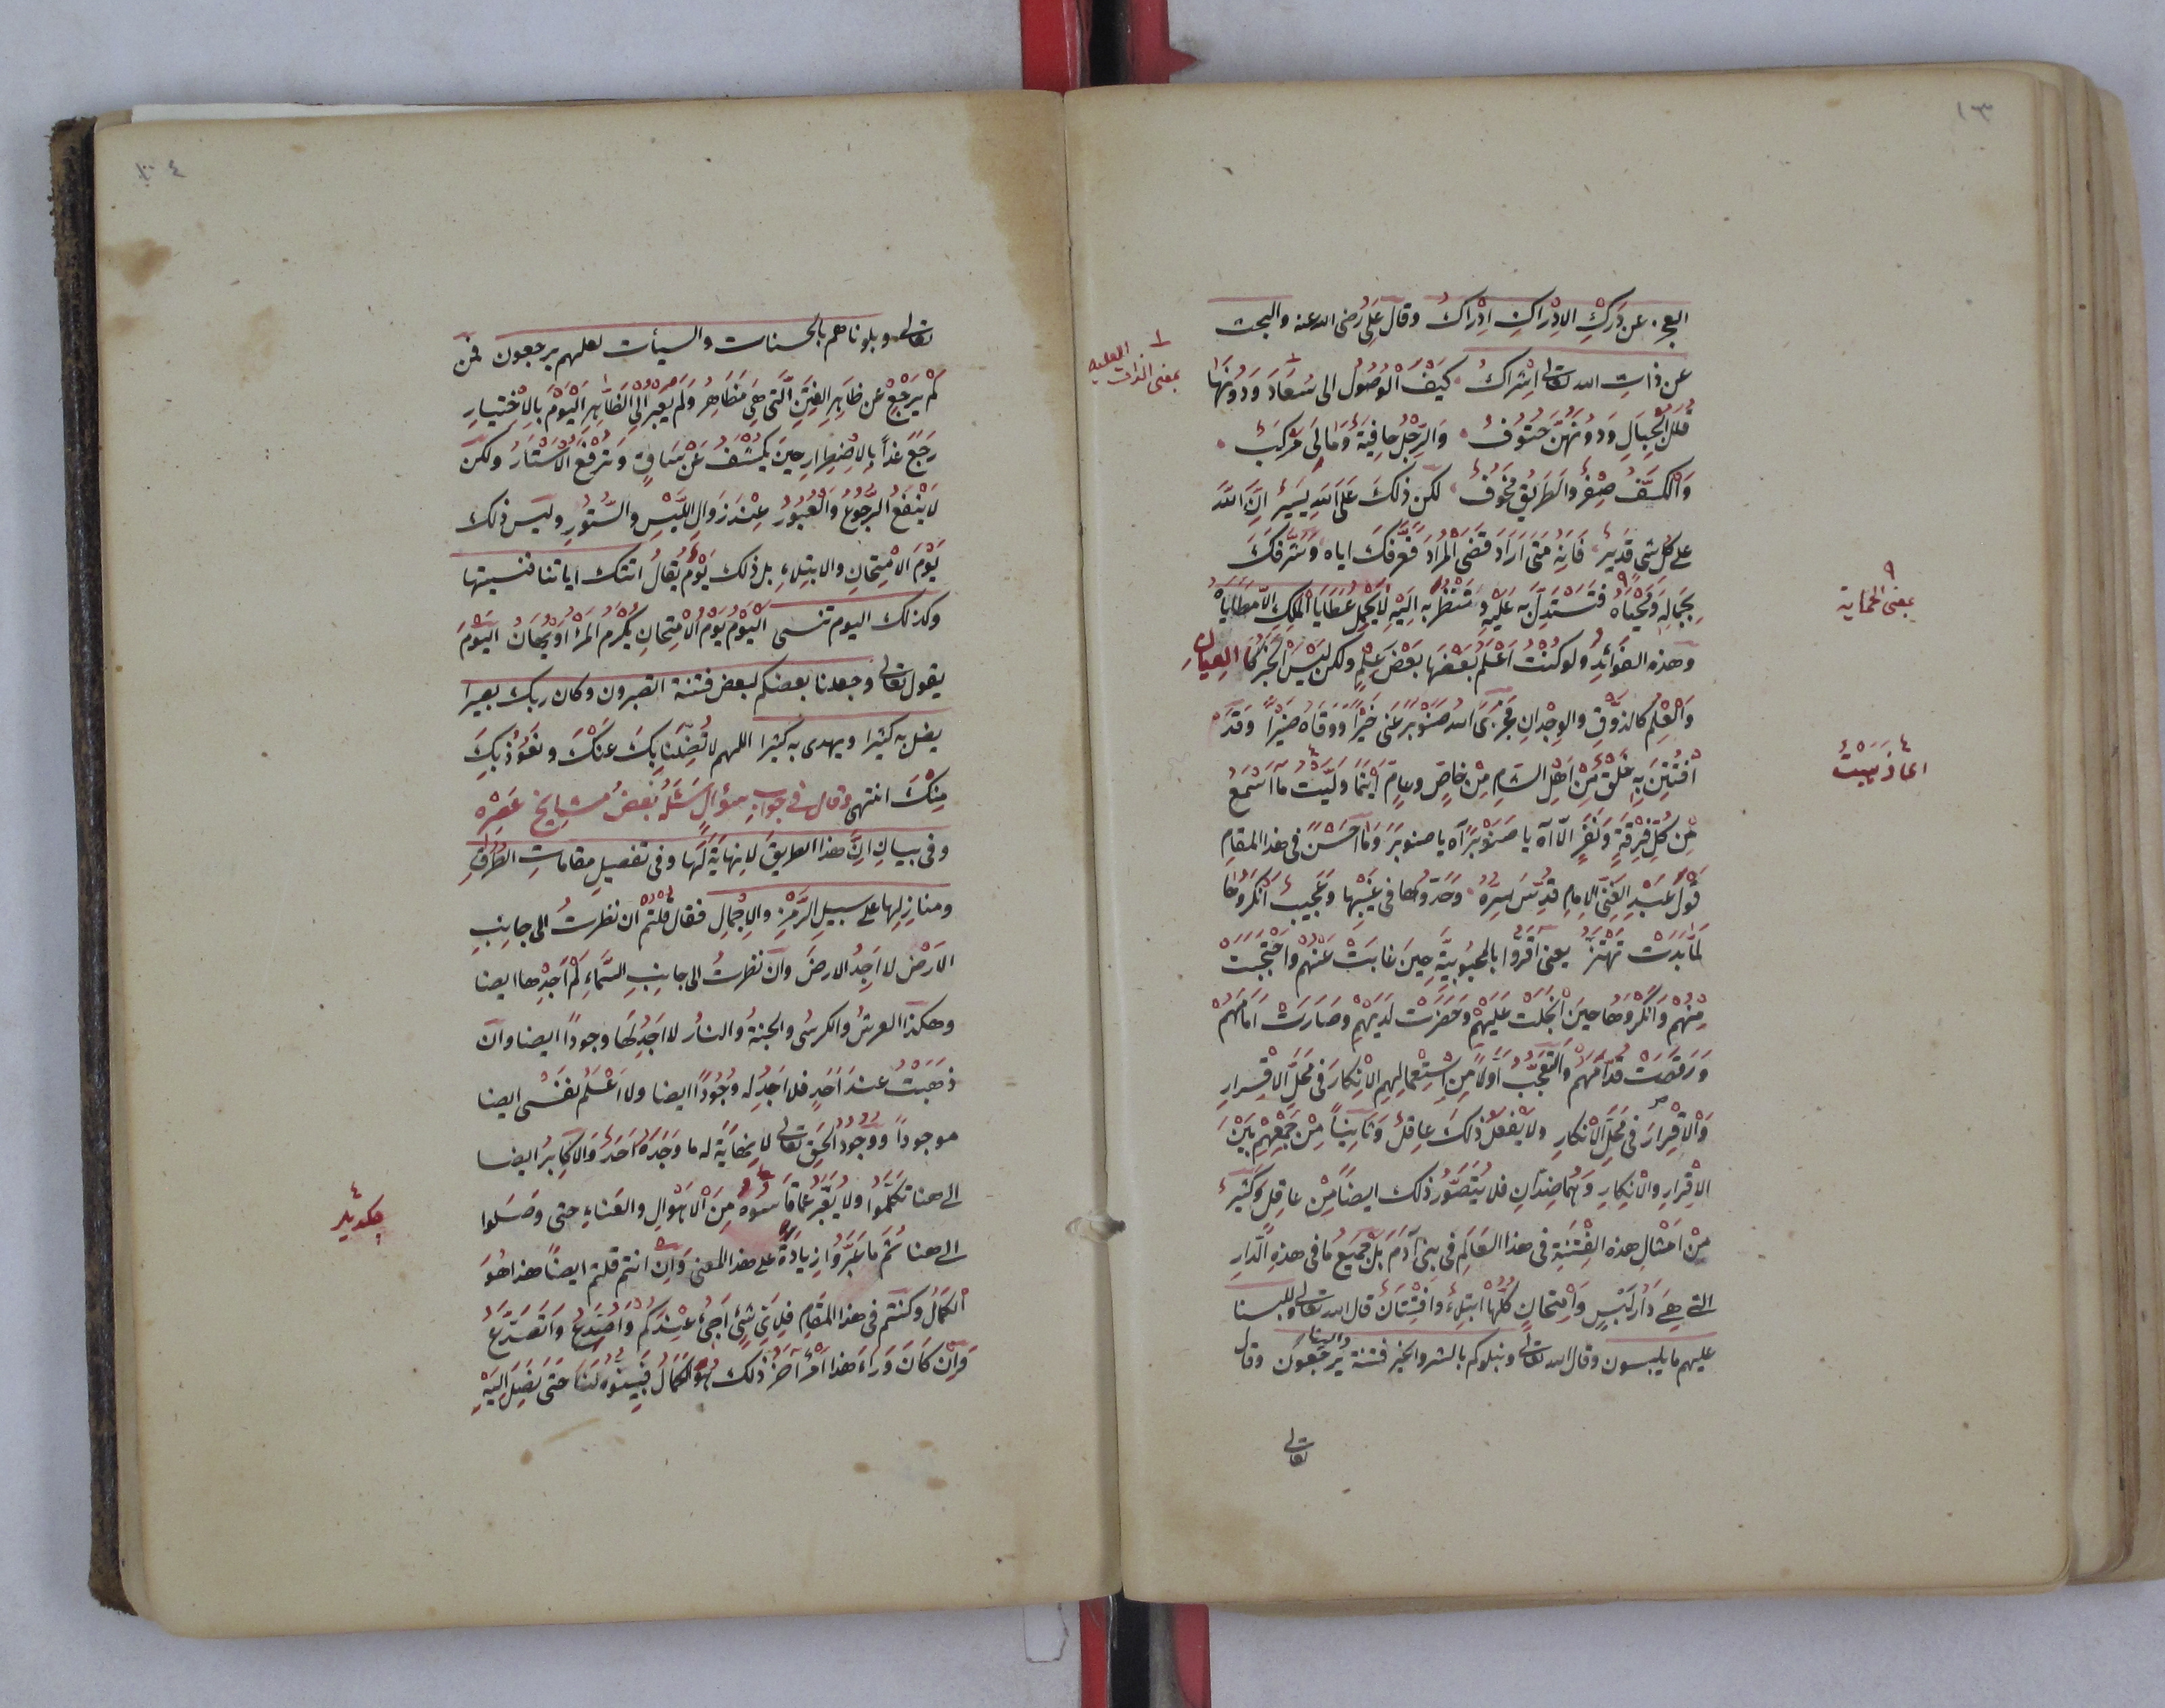 ١٣
العجز عن دَرَكِ الادْراكِ اِدْراكُ وقال عَلِى رُضى الله عنه والبحث
عن ذاتِ الله تعالى اِشْراكُ كيْفَ الْوُصُولُ الى سُعَادَ وَدُونَهَا
قُلَلُ الْجِبَالِ وَدُونَهُنَّ حُتُوفُ وَالرِّجْلُ حافِيَةٌ وَمالَى مَرْكَبُ
وَالْكَفُّ صِفْرٌ وَالطَّرِيقُ مَخُوفُ لكن ذلكَ عَلَى اللهِ يَسِيرٌ اِنَّ اللهَ
على كُلِّ شَىٍ قدير فَاِنَّهُ مَتَى اَرَادَ قَضَى المُرَادَ فَعَرَّفَكَ اياه وَشَرَّفَكَ
بِجَمالِهِ وَمُحَيَّاهُ فَتَسْتَدِلَّ به عَلَيْهِ وَتَنْتَظُرُ به اِلَيْهِ لا يَحْمِلُ عَطَايَا الْمَلِكِ اِلاَّ مَطَايَاهُ
وهذه الفوَائِدُ وَلو كُنْتُ اَعْلَمُ بَعْضَهَا بَعْضَ عِلْمٍ ولكن لَيْسَ الْخَبَرُ كَالعِيَانِ
وَالْعِلْمُ كالذَّوْقِ والوِجْدانِ فَجَزَى اللهُ صَنَوْبَرَ عَنِّى خَيْرًا وَوَقَاهُ ضَيْرًا وَقَدِ
افْتُتِنَ بِهِ خَلْقٌ مِّنْ اَهْلِ الشامِ مِنْ خاصٍّ وعامٍّ اَيْنَمَا وَلَّيْتُ مَا اَسْمَعُ
مِن كُلِّ فِرْقَةٍ وَنَفَرٍ اِلاّ آه يا صَنَوْبَرُ آه يا صنوبرُ وَمَا اَحْسَنَ فى هذا المقامِ
قَوْلَ عَبْدِ الغَنِىِّ الامامِ قُدِّسَ سِرُّهُ وَحَدّوُهَا فى غَيْبِهَا وَعَجِيبٌ اَنْكَرُوهَا
لَمّا بَدَتْ تَهْتَزُّ يعنى اَقَرُّوا بالمحبُوبِيَّةِ حِينَ غابَتْ عَنْهُمْ وَاحْتَجَبَتْ
مِنْهُمْ وَاَنْكَرُوهَا حِينَ انْجَلَتْ عَلَيْهِمْ وَحَضَرَتْ لَدَيْهِمْ وَصَارَتْ اَمَامَهُمْ
وَرَقَصَتْ قُدَّامَهُمْ وَالتَّعَجُّبُ اَوَّلاً مِنِ اسْتِعْمالِهِمِ الانكارَ فى مَحَلِّ الاقْرارِ
وَالاقْرِارَ فى مَحَلِّ الانكارِ ولا يَفْعَلُ ذلكَ عاقِلٌ وَثَانِيًا مِنْ جَمْعِهِمْ بَيْنَ
الاقْرِارِ وَالانكارِ وَهُمَا ضِدّانِ فلا يُتَصَوَّرُ ذلك ايضًا مِنْ عاقِلٍ وَكَثِيرٌ
مِنْ اَمْثالِ هذه الفِتْنَةِ فى هذا العَالَمِ فى بنى آدَمَ بَلْ جَمِيعُ ما فى هذه الدَّارِ
التى هِىَ دَارُ لَبْسٍ وَامْتِحَانٍ كُلُّهَا ابْتِلاءٌ وَافْتِتَانٌ قال الله تعالى وللبسنا
عليهم ما يلبسون وقال الله تعالى ونبلوكم بالشر والخير فتنة والينا تُرْجَعُونَ وقال
تعالى
١ بمعنى الذات العليه
٩ بمعنى الحماية
٤ اعاذهبْتُ
تعالى وبلوناهم بالحسنات والسيأت لعلهم يرجعون فمن
لَمْ يَرْجِعْ عن ظاهِرِ الفِتَنِ الَّتى هِىَ مَظَاهِرُ وَلَمْ يَعْبُرْ اِلَى الظّاهِرِ الْيَوْمَ بالاِخْتِيَارِ
رَجَعَ غداً بالاضْطِرارِ حِينَ يُكْشَفُ عَنْ سَاقٍ وَتُرْفَعُ الاَسْتَارُ ولكن
لا يَنْفَعُ الرُّجُوعُ وَالْعُبُورُ عِنْدَ زَوالِ اللَّبْسِ والسُّتُورِ وليس ذلك
يَوْمَ الامْتِحانِ والابتلاءِ بل ذلك يَوْمٌ يُقَالُ اتتك اياتنا فنسيتها
وكذلك اليوم تنسى اَلْيَوْمُ يَوْمُ الامْتِحانِ يُكْرَمُ المَرْءُ اَوْ يُهَانُ اليَوْمَ
يقول تعالى وجعلنا بعضكم لبعض فتنة اتصبرون وكان ربك بصيرا
يضل به كثيرا ويهدى به كثيرا اللهم لا تُضِلَّنَا بِكَ عَنْكَ ونَعُوذُ بِكَ
مِنْكَ انتهى وقال فى جوابِ سؤالٍ سَئَلَهُ بَعضُ مشايِخ عَصْرِه
وفى بيانِ اَنَّ هذا الطريقَ لا نهايَةَ لَهَا وفى تفصيلِ مقاماتِ الطُّرُقِ
ومنازِلِها على سبيلِ الرَّمْزِ والاِجْمالِ فقال قلتُمْ اِن نظرتُ الى جانِبِ
الاَرْضِ لا اَجِدُ الارضَ وَاِن نظرتُ الى جانِبِ السَّمَاءِ لَمْ اَجِدْهَا ايضا
وهكذا العرشُ والكرسُى والجنةُ والنارُ لا اَجِدُ لَهَا وجوداً ايضا وان
ذهَبْتُ عندَ اَحَدٍ فلا اَجِدُ له وُجُودًا ايضا ولا اَعْلَمُ نَفْسى ايضا
موجوداً وَوُجُودُ الحَقِّ تعالى لا نِهَايَةَ له ما وَجَدَهُ اَحَدٌ وَالاَكابِرُ ايضا
الى هنا تكلَّمُوا ولا يُعَبَّرُ عمّا قَاسَوْه مِنَ الاَهْوالِ والفَناءِ حتى وصَلوا
الى هنا ثُمَّ ما عَبَّرُوا زيادَةً على هذا المعنى وَاِنْ انتم قلتم ايضًا هذا هُوَ
الْكَمَالُ وكنتم فى هذا المَقَامِ فلِاَىِّ شئٍ اَجِئُ عِنْدَكُمْ وَاَصْدَعُ وَاَتَصَدَّعُ
وَاِنْ كَانَ وَرَاءَ هذا اَمْرٌ آخَرُ ذلك هُوَ الكَمَالُ فَبَيِّنُوهُ لَنَا حَتّى نَصِلَ اِلَيْهِ